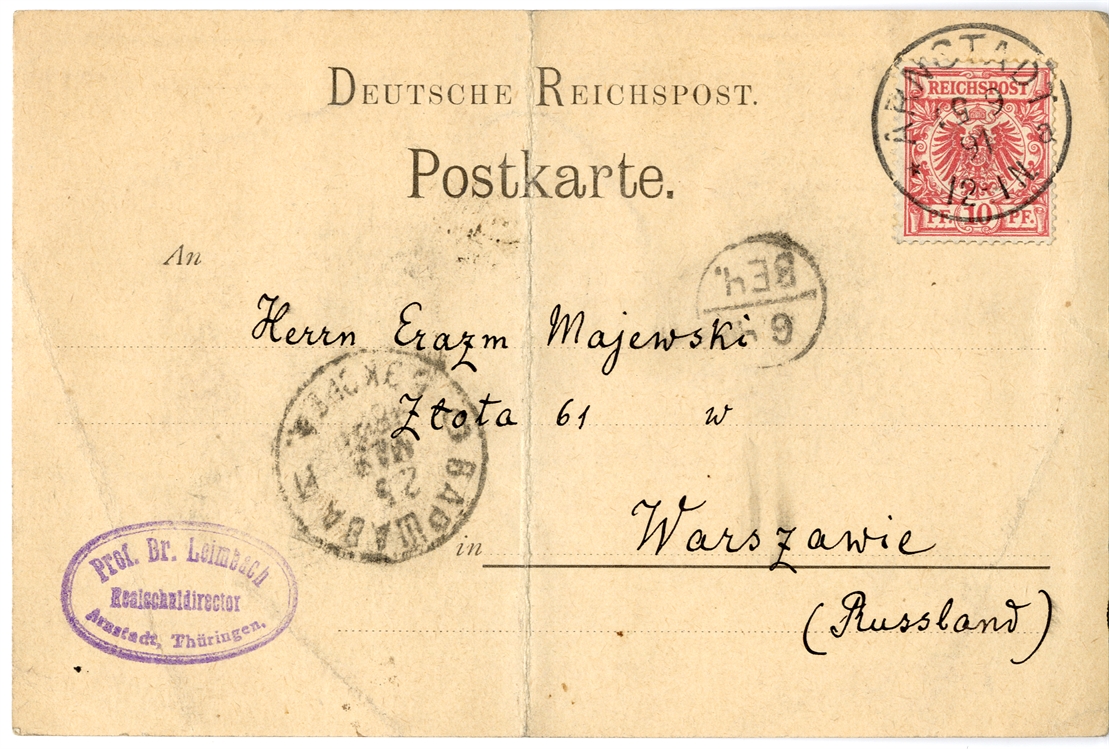 DEUTSCHE REICHSPOST.
Postkarte.
ARNSTADT
91
12-1N
REICHSPOST
PF. 10 PF.
An
6 Ч.
ВЕЧ.
Herrn Erazm Majewski
Złota 61 w
ВАРШАВА
23
МАЯ
in Warszawie
(Russland)
Prof. Dr. Leimbach
Realschuldirector
Arnstadt, Thüringen.